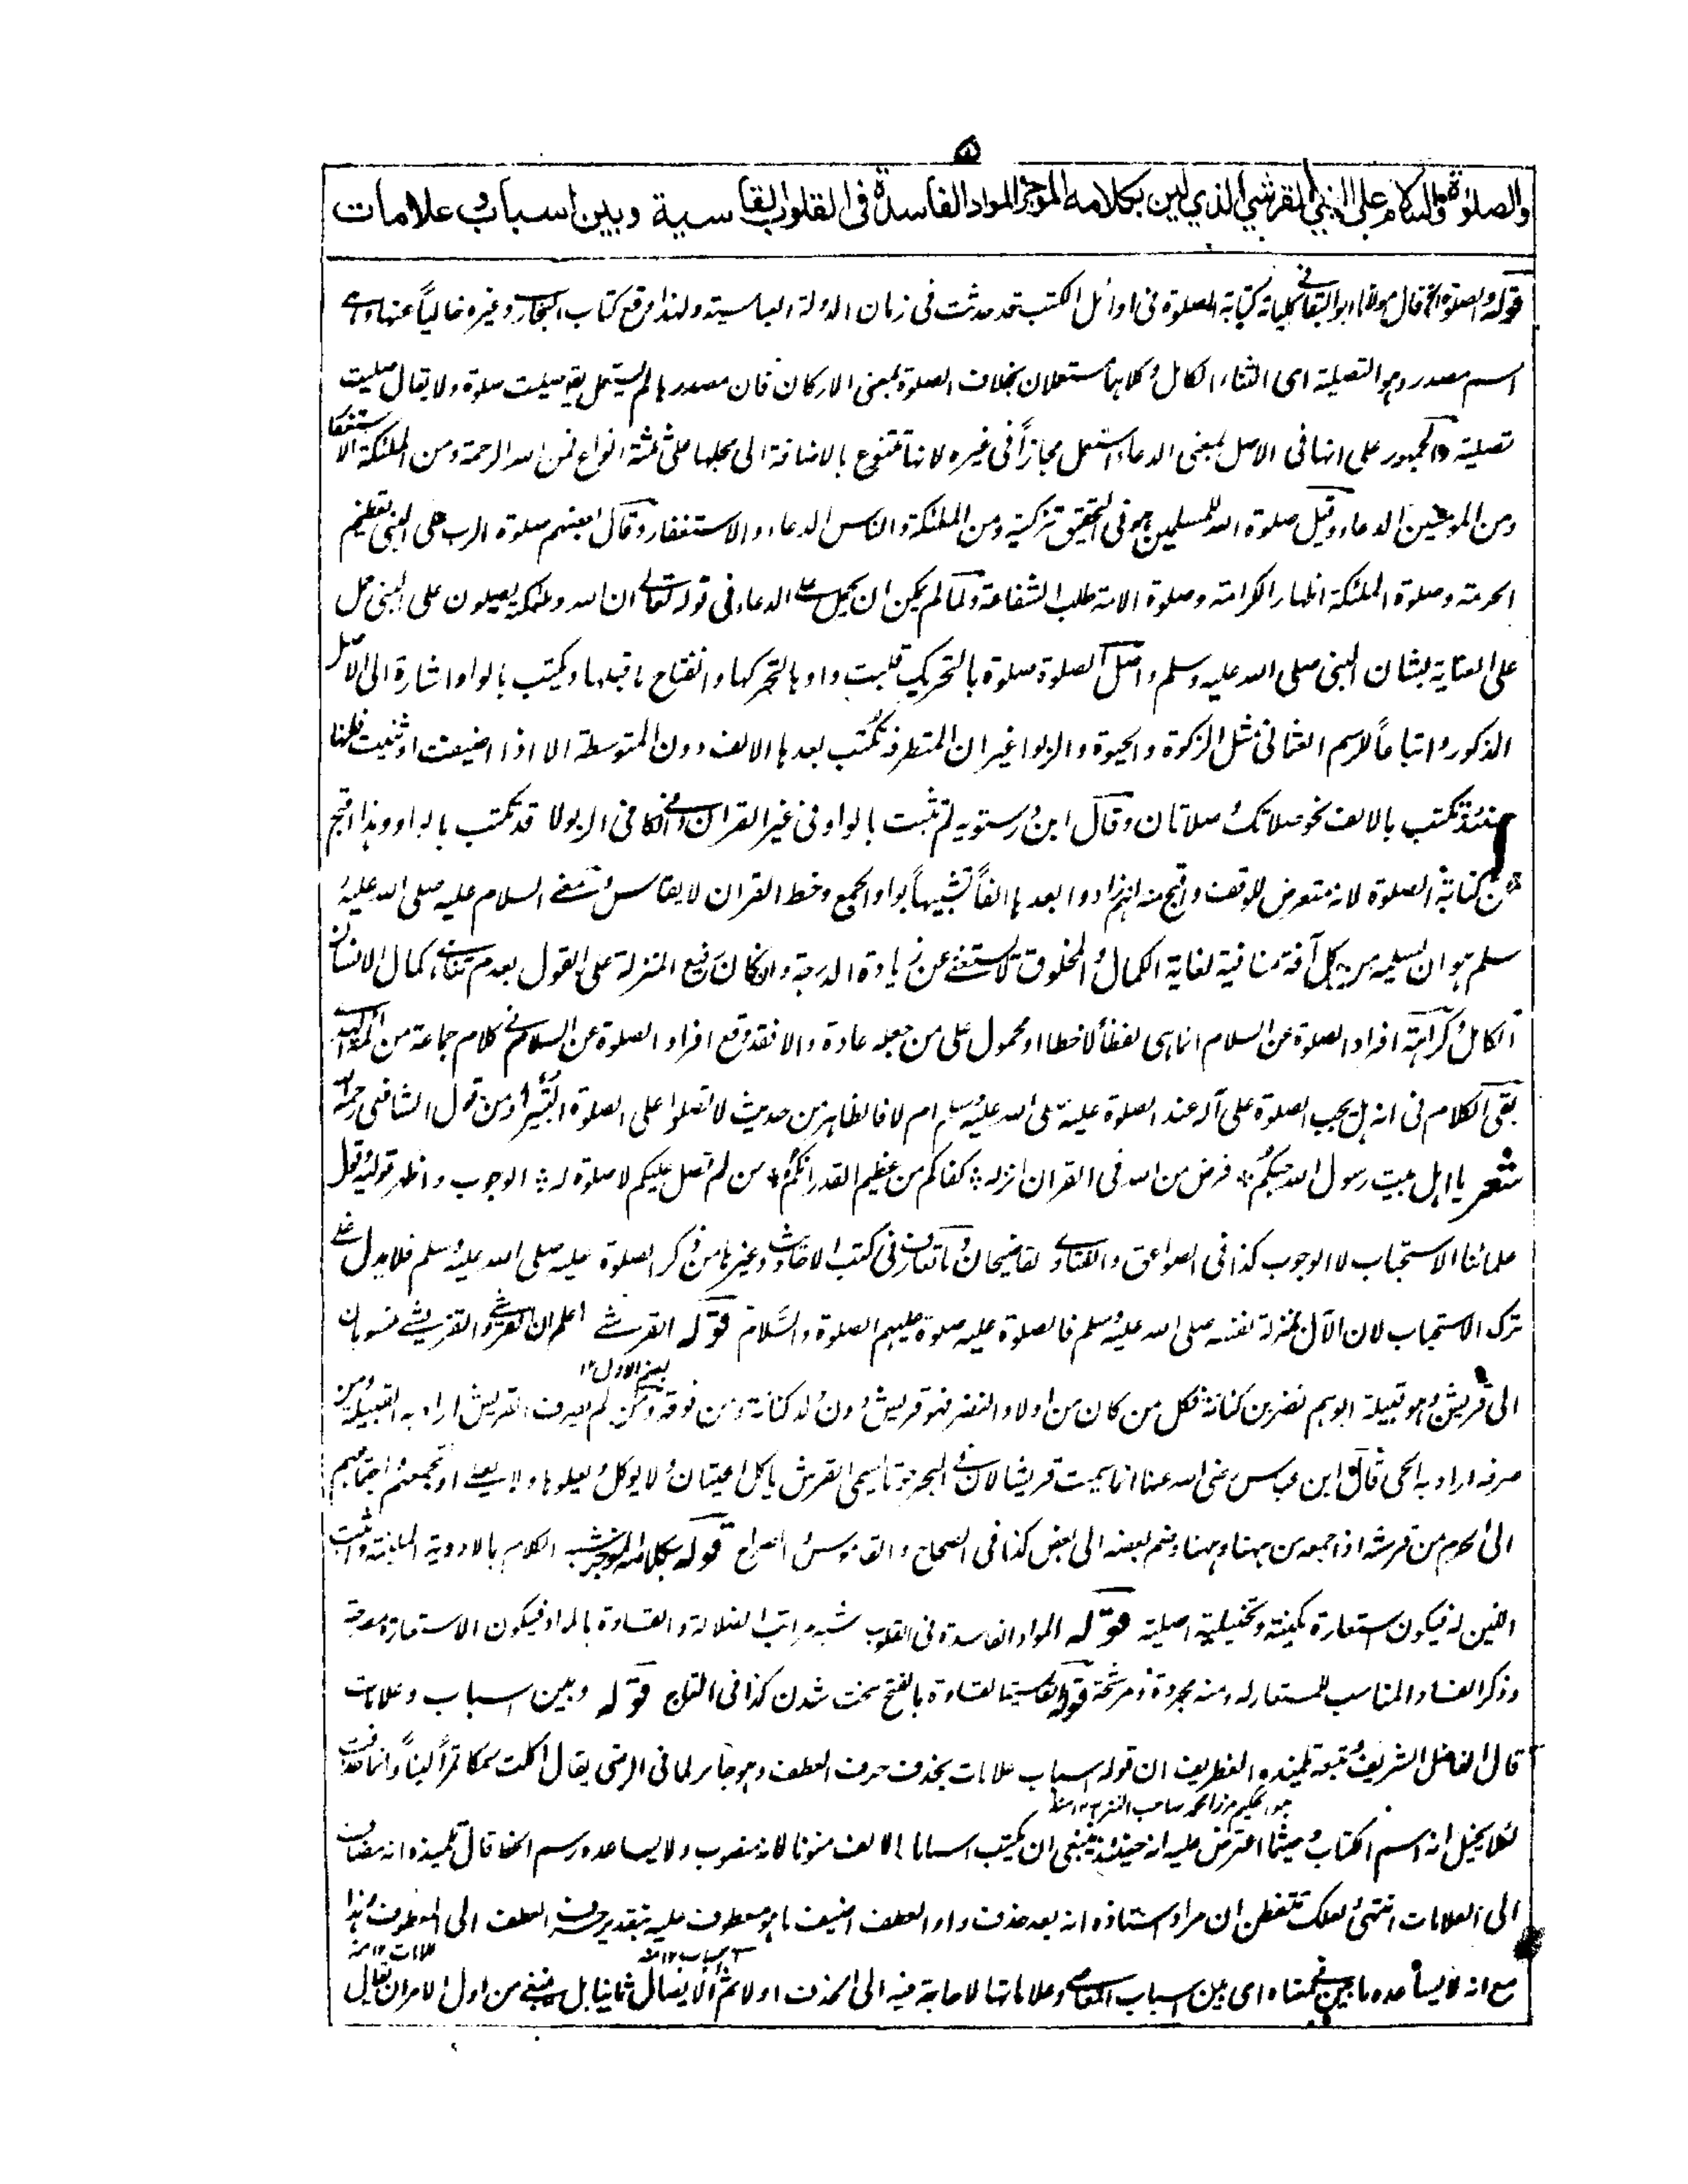 ٥
والصلوة والسلام على النبي القرشي الذي لين بكلامه الموجز المواد الفاسدة في القلوب القاسية وبين اسباب وعلامات
قوله والصلوة الخ قال مولانا ابو البقا في كلياته كتابة الصلوة في اوائل الكتب قد حدثت في زمان الدولة العباسية ولهذا وقع كتاب البخاري وغيره خالياً عنها وهي
اسم مصدر وهو التصلية اى الثناء الكامل وكلاهما مستعملان بخلاف الصلوة بمعنى الاركان فان مصدرها لم يستعمل يقه صليت صلوة ولا يقال صليت
تصلية والجمهور على انها في الاصل بمعنى الدعاء استعمل مجازاً في غيره لانها تتنوع بالاضافة الى محلها على ثلثة انواع فمن الله الرحمة ومن الملئكة الاستغفار
ومن المومنين الدعاء وقيل صلوة الله للمسلمين هو في التحقيق تزكية ومن الملئكة والناس الدعاء والاستغفار وقال بعضهم صلوة الرب على النبي تعظيم
الحرمة وصلوة الملئكة اظهار الكرامة وصلوة الامة طلب الشفاعة ولما لم يكن ان يحمل على الدعاء في قوله تعالى ان الله وملئكته يصلون على النبي حمل
على العناية بشان النبي صلى الله عليه وسلم واصل الصلوة صلوة بالتحريك قلبت واوها لتحركها وانفتاح ما قبلها وتكتب بالواو اشارة الى الاصل
المذكور واتباعاً للرسم العثماني مثل الزكوة والحيوة والربوا غير ان المتطرفة تكتب بعدها الالف دون المتوسطة الا اذا اضيفت او ثنيت فانها
حينئذ تكتب بالالف نحو صلاتك وصلاتان وقال ابن درستويه لم تثبت بالواو في غير القران وفي الكافي الربوا قد تكتب بالواو وهذا اقبح
من كتابة الصلوة لانه متعرض للوقف واقبح منه انهم زادوا بعدها الفاً تشبيهاً بواو الجمع وخط القران لا يقاس ومعنى السلام عليه صلى الله عليه و
سلم هو ان يسلمه من كل آفة منافية لغاية الكمال والمخلوق لا يستغنى عن زيادة الدرجة وان كان رفيع المنزلة على القول بعدم تناهي كمال الانسان
الكامل وكراهة افراد الصلوة عن السلام انما هي لفظاً لا خطا او محمول على من جعله عادة والا فقد وقع افراد الصلوة عن السلام في كلام جماعة من ائمة الهدى
بقي الكلام في انه هل يجب الصلوة على آله عند الصلوة عليه صلى الله عليه وسلم ام لا فالظاهر من حديث لا تصلوا على الصلوة البتيراء ومن قول الشافعي رحمه الله
شعر يا اهل بيت رسول الله حبكم ٭ فرض من الله في القران انزله ٭ كفاكم من عظيم القدر انكم ٭ من لم يصل عليكم لا صلوة له ٭ الوجوب واظهر قولي قول
علمائنا الاستحباب لا الوجوب كذا في الصواعق والفتاوى لقاضيخان وما تعارف في كتب الاحاديث وغيرها من ذكر الصلوة عليه صلى الله عليه وسلم فلا يدل على
ترك الاستحباب لان الآل بمنزلة نفسه صلى الله عليه وسلم فالصلوة عليه صلوة عليهم الصلوة والسلام قوله القرشي اعلم ان القرشي والقريشي منسوبان
بفتح الاول ١٢
الى قريش وهو قبيلة ابوهم نضر بن كنانة فكل من كان من اولاد النضر فهو قريش دون ولد كنانة ومن فوقه ومن لم يصرف القريش اراد به القبيلة ومن
صرفه اراد به الحي قال ابن عباس رضى الله عنهما انما سميت قريشا لان في البحر حوتا يسمى القرش ياكل الحيتان ولا يوكل ويعلوها ولا يعلى او لتجمعهم اجتماعهم
الى الحرم من قرشه اذا جمعه من ههنا وههنا وضم بعضه الى بعض كذا في الصحاح والقاموس والصراح قوله بكلامه الموجز شبه الكلام بالادوية الملينة واثبت
اللين له فيكون استعارة مكنية وتخييلية اصلية قوله المواد الفاسدة في القلوب شبه مراتب الضلالة والقساوة بالمواد فيكون الاستعارة مصرحة
وذكر الفساد المناسب للمستعار له ومنه مجردة ومرشحة قوله القاسية القساوة بالفتح سخت شدن كذا في التاج قوله وبين اسباب وعلامات
قال الفاضل الشريف وتبعه تلميذه الغطريف ان قوله اسباب علامات بحذف حرف العطف وهو جائز لما في الرضى يقال اكلت سمكا تمراً لبناً وانما حذفت
هو الحكيم مرزا محمد صاحب ١٢ منه
لئلا يخيل انه اسم الكتاب وحيثما اعترض عليه انه حينئذ ينبغي ان يكتب اسبابا بالالف منونا لانه منصوب ولا يساعده رسم الخط قال تلميذه انه مضاف
الى العلامات انتهى ولعلك تتفطن ان مراد استاذه انه بعد حذف واو العطف اضيف ما هو معطوف عليه بتقدير حرف العطف الى المعطوف وهذا
اسباب ١٢ منه علامات ١٢ منه
مع انه لا يساعده ما بين معناه اى بين اسباب المعاصي وعلاماتها لا حاجة فيه الى الحذف اولا ثم الايصال ثانيا بل ينبغي من اول الامر ان يقال